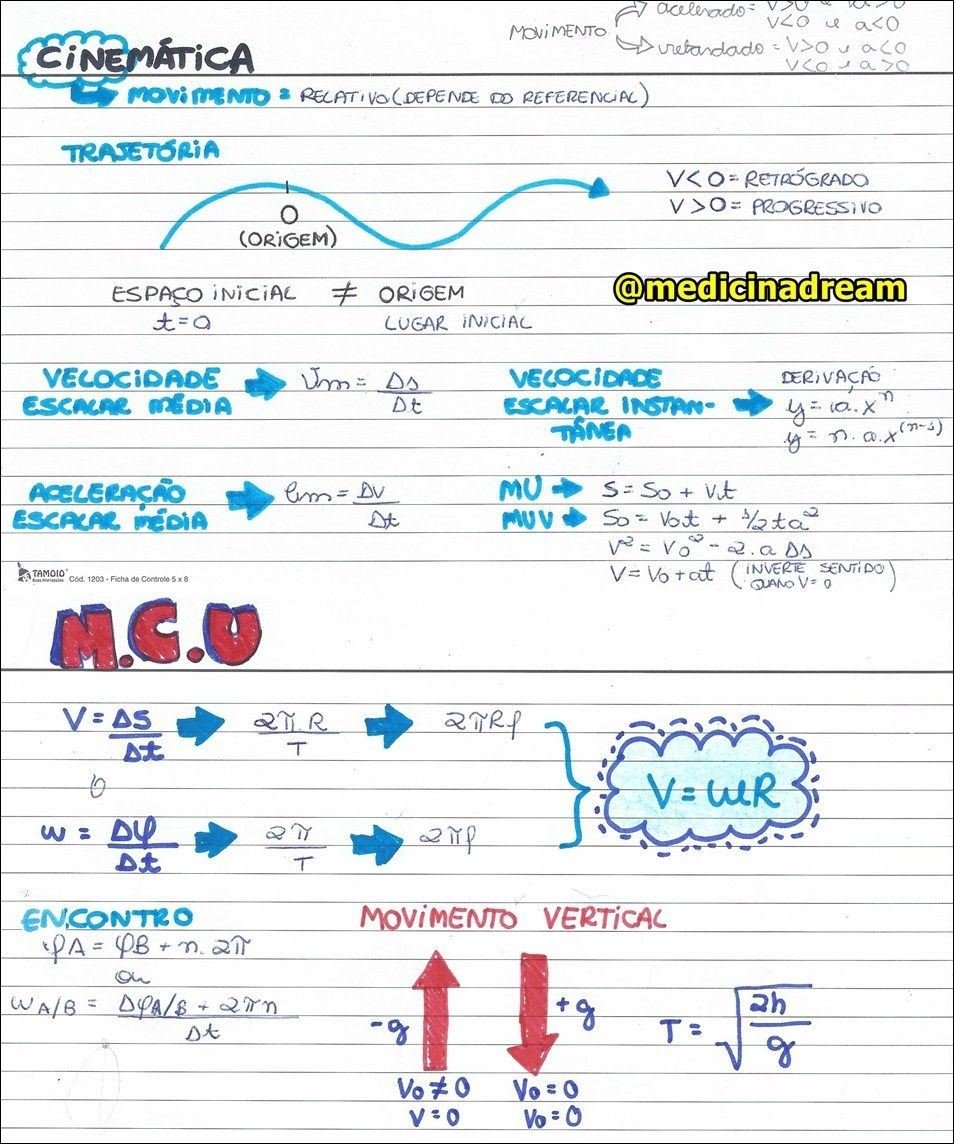 acelerado = V>0 e a>0
V<0 e a<0
MOVIMENTO
retardado = V>0 e a<0
V<0 e a>0
CINEMÁTICA
MOVIMENTO = RELATIVO (DEPENDE DO REFERENCIAL)
TRAJETÓRIA
V<0 = RETRÓGRADO
V>0 = PROGRESSIVO
O
(ORIGEM)
ESPAÇO INICIAL ≠ ORIGEM
t=0 LUGAR INICIAL
@medicinadream
VELOCIDADE ESCALAR MÉDIA
Vm = Δs/Δt
VELOCIDADE ESCALAR INSTAN-
TÂNEA
DERIVAÇÃO
y = a.x^n
y = n.a.x^(n-1)
ACELERAÇÃO ESCALAR MÉDIA
am = ΔV/Δt
MU S = So + V.t
MUV So = Vot + 1/2 ta²
V² = Vo² - 2.a Δs
V = Vo + at (INVERTE SENTIDO
QUANO V=0)
TAMOIO Cód. 1203 - Ficha de Controle 5 x 8
M.C.U
V = ΔS/Δt 2π.R/T 2πRf
V = ωR
ω = Δφ/Δt 2π/T 2πf
ENCONTRO
φA = φB + n.2π
ou
ωA/B = ΔφA/B + 2πn/Δt
MOVIMENTO VERTICAL
-g +g
T = √2h/g
Vo ≠ 0 Vo = 0
V = 0 Vo = 0